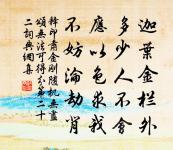 迦葉金栏外
多少人不會
應以色求我
不妨淪劫背
釋印肅金剛隨机無盡
頌無法可得分第二十
二詞典網集